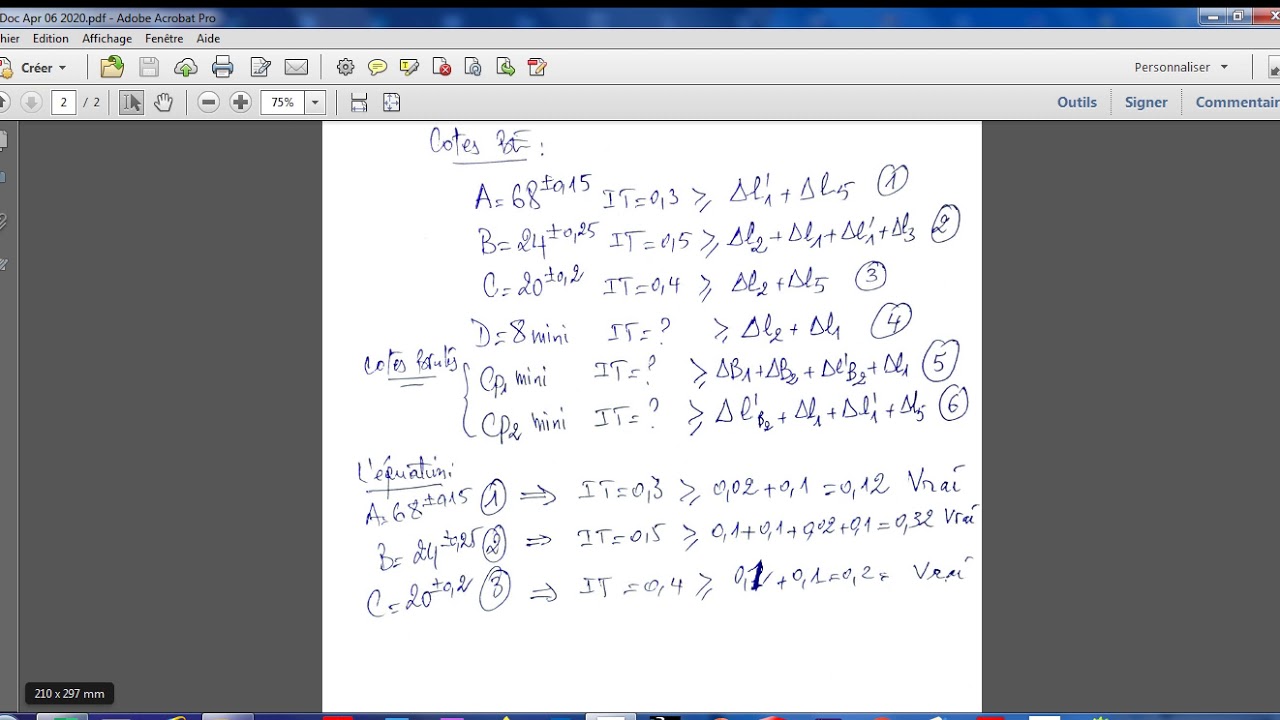 Doc Apr 06 2020.pdf - Adobe Acrobat Pro
hier Edition Affichage Fenêtre Aide
Créer Personnaliser
2 / 2 75% Outils Signer Commentair
Cotes :
A = 68 ±0,15 IT = 0,3 ⩾ Δl'1 + Δl5 ①
B = 24 ±0,25 IT = 0,5 ⩾ Δl2 + Δl1 + Δl'1 + Δl3 ②
C = 20 ±0,2 IT = 0,4 ⩾ Δl2 + Δl5 ③
D = 8 mini IT = ? ⩾ Δl2 + Δl1 ④
Cotes
Cp1 mini IT = ? ⩾ ΔB1 + ΔB2 + Δl'B2 + Δl1 ⑤
Cp2 mini IT = ? ⩾ Δl'B2 + Δl1 + Δl'1 + Δl5 ⑥
L'équation:
A = 68 ±0,15 ① ⇒ IT = 0,3 ⩾ 0,02 + 0,1 = 0,12 Vrai
B = 24 ±0,25 ② ⇒ IT = 0,5 ⩾ 0,1 + 0,1 + 0,02 + 0,1 = 0,32 Vrai
C = 20 ±0,2 ③ ⇒ IT = 0,4 ⩾ 0,1 + 0,1 = 0,2 = Vrai
210 x 297 mm